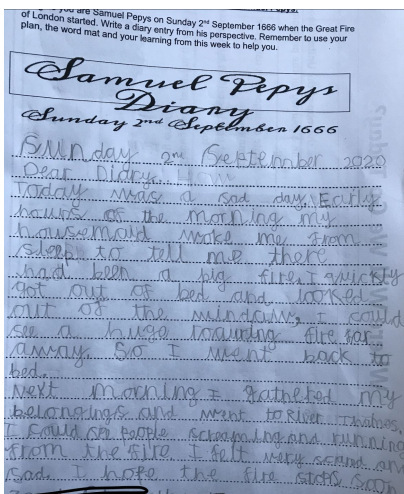 you are Samuel Pepys on Sunday 2nd September 1666 when the Great Fire
of London started. Write a diary entry from his perspective. Remember to use your
plan, the word mat and your learning from this week to help you.
Samuel Pepys
Diary
Sunday 2nd September 1666
Sunday 2nd September 2020
Dear Diary,
Today was a sad day. Early
hours of the morning my
housemaid woke me from
sleep to tell me there
had been a big fire. I quickly
got out of bed and looked
out of the window, I could
see a huge roaring fire far
away. So I went back to
bed.
Next morning I gathered my
belongings and went to River Thames.
I could see people screaming and running
from the fire. I felt very scared and
sad. I hope the fire stops soon